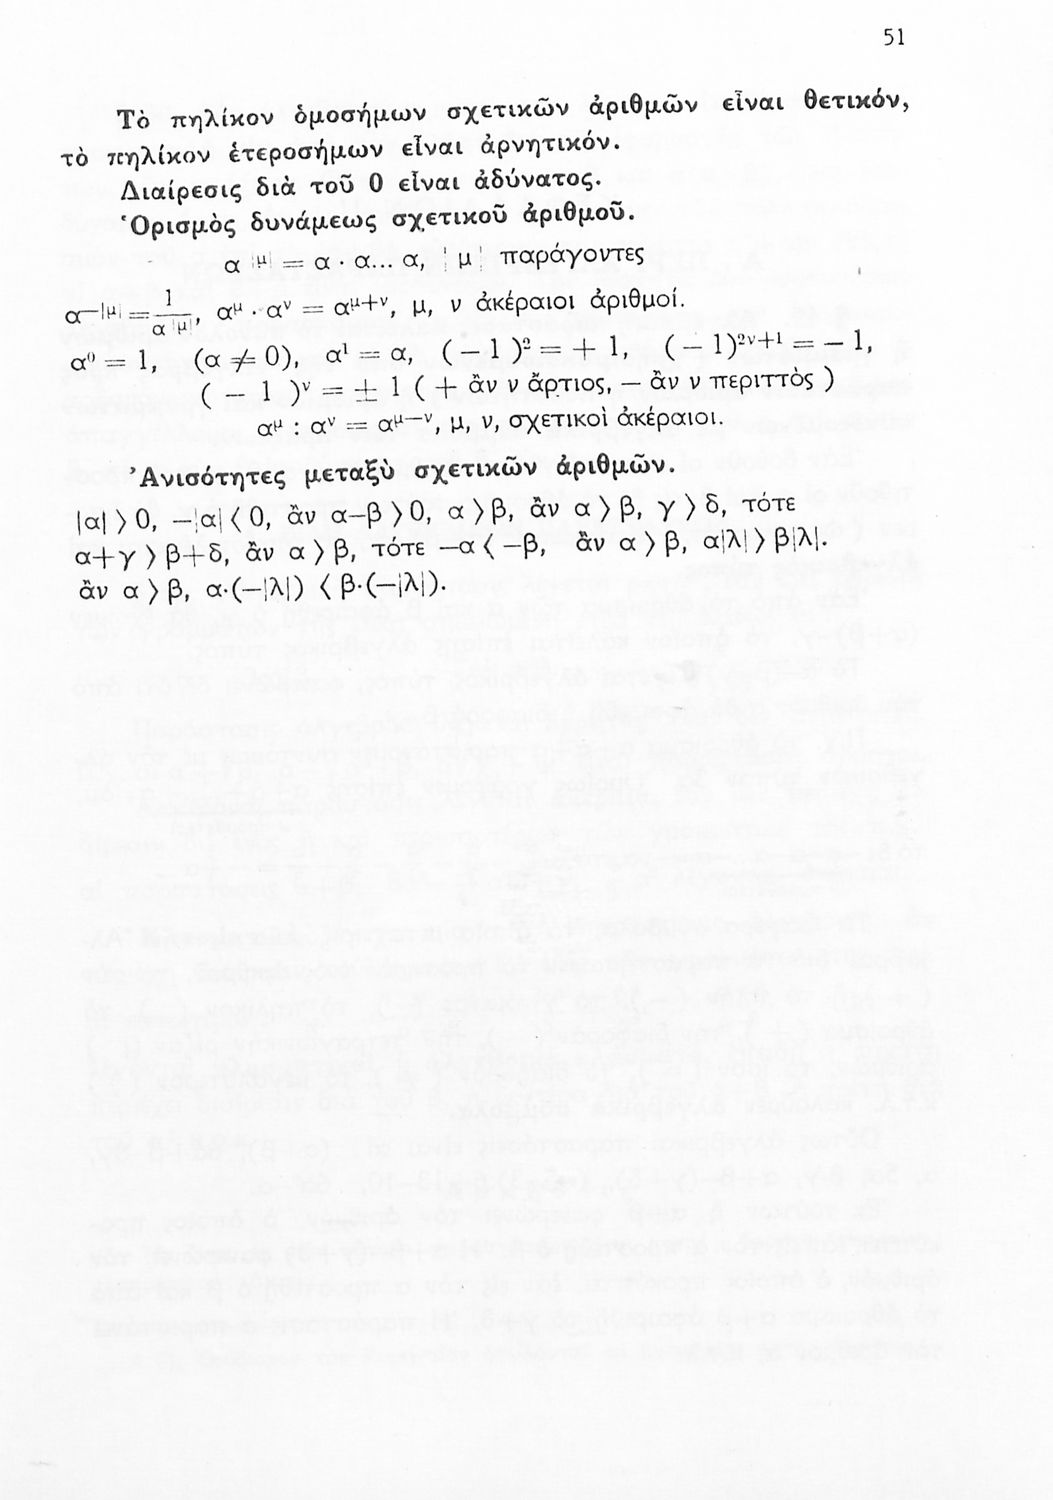 51
Τὸ πηλίκον ὁμοσήμων σχετικῶν ἀριθμῶν εἶναι θετικόν,
τὸ πηλίκον ἑτεροσήμων εἶναι ἀρνητικόν.
Διαίρεσις διὰ τοῦ 0 εἶναι ἀδύνατος.
Ὁρισμὸς δυνάμεως σχετικοῦ ἀριθμοῦ.
α^|μ| = α · α... α, |μ| παράγοντες
α^—|μ| = 1/α^|μ|, α^μ · α^ν = α^μ+ν, μ, ν ἀκέραιοι ἀριθμοί.
α⁰ = 1, (α ≠ 0), α¹ = α, ( — 1 )² = + 1, ( — 1)^2ν+1 = — 1,
( — 1 )^ν = ± 1 ( + ἂν ν ἄρτιος, — ἂν ν περιττὸς )
α^μ : α^ν = α^μ—ν, μ, ν, σχετικοὶ ἀκέραιοι.
Ἀνισότητες μεταξὺ σχετικῶν ἀριθμῶν.
|α| > 0, —|α| < 0, ἂν α—β > 0, α > β, ἂν α > β, γ > δ, τότε
α+γ > β+δ, ἂν α > β, τότε —α < —β, ἂν α > β, α|λ| > β|λ|.
ἂν α > β, α·(—|λ|) < β·(—|λ|).